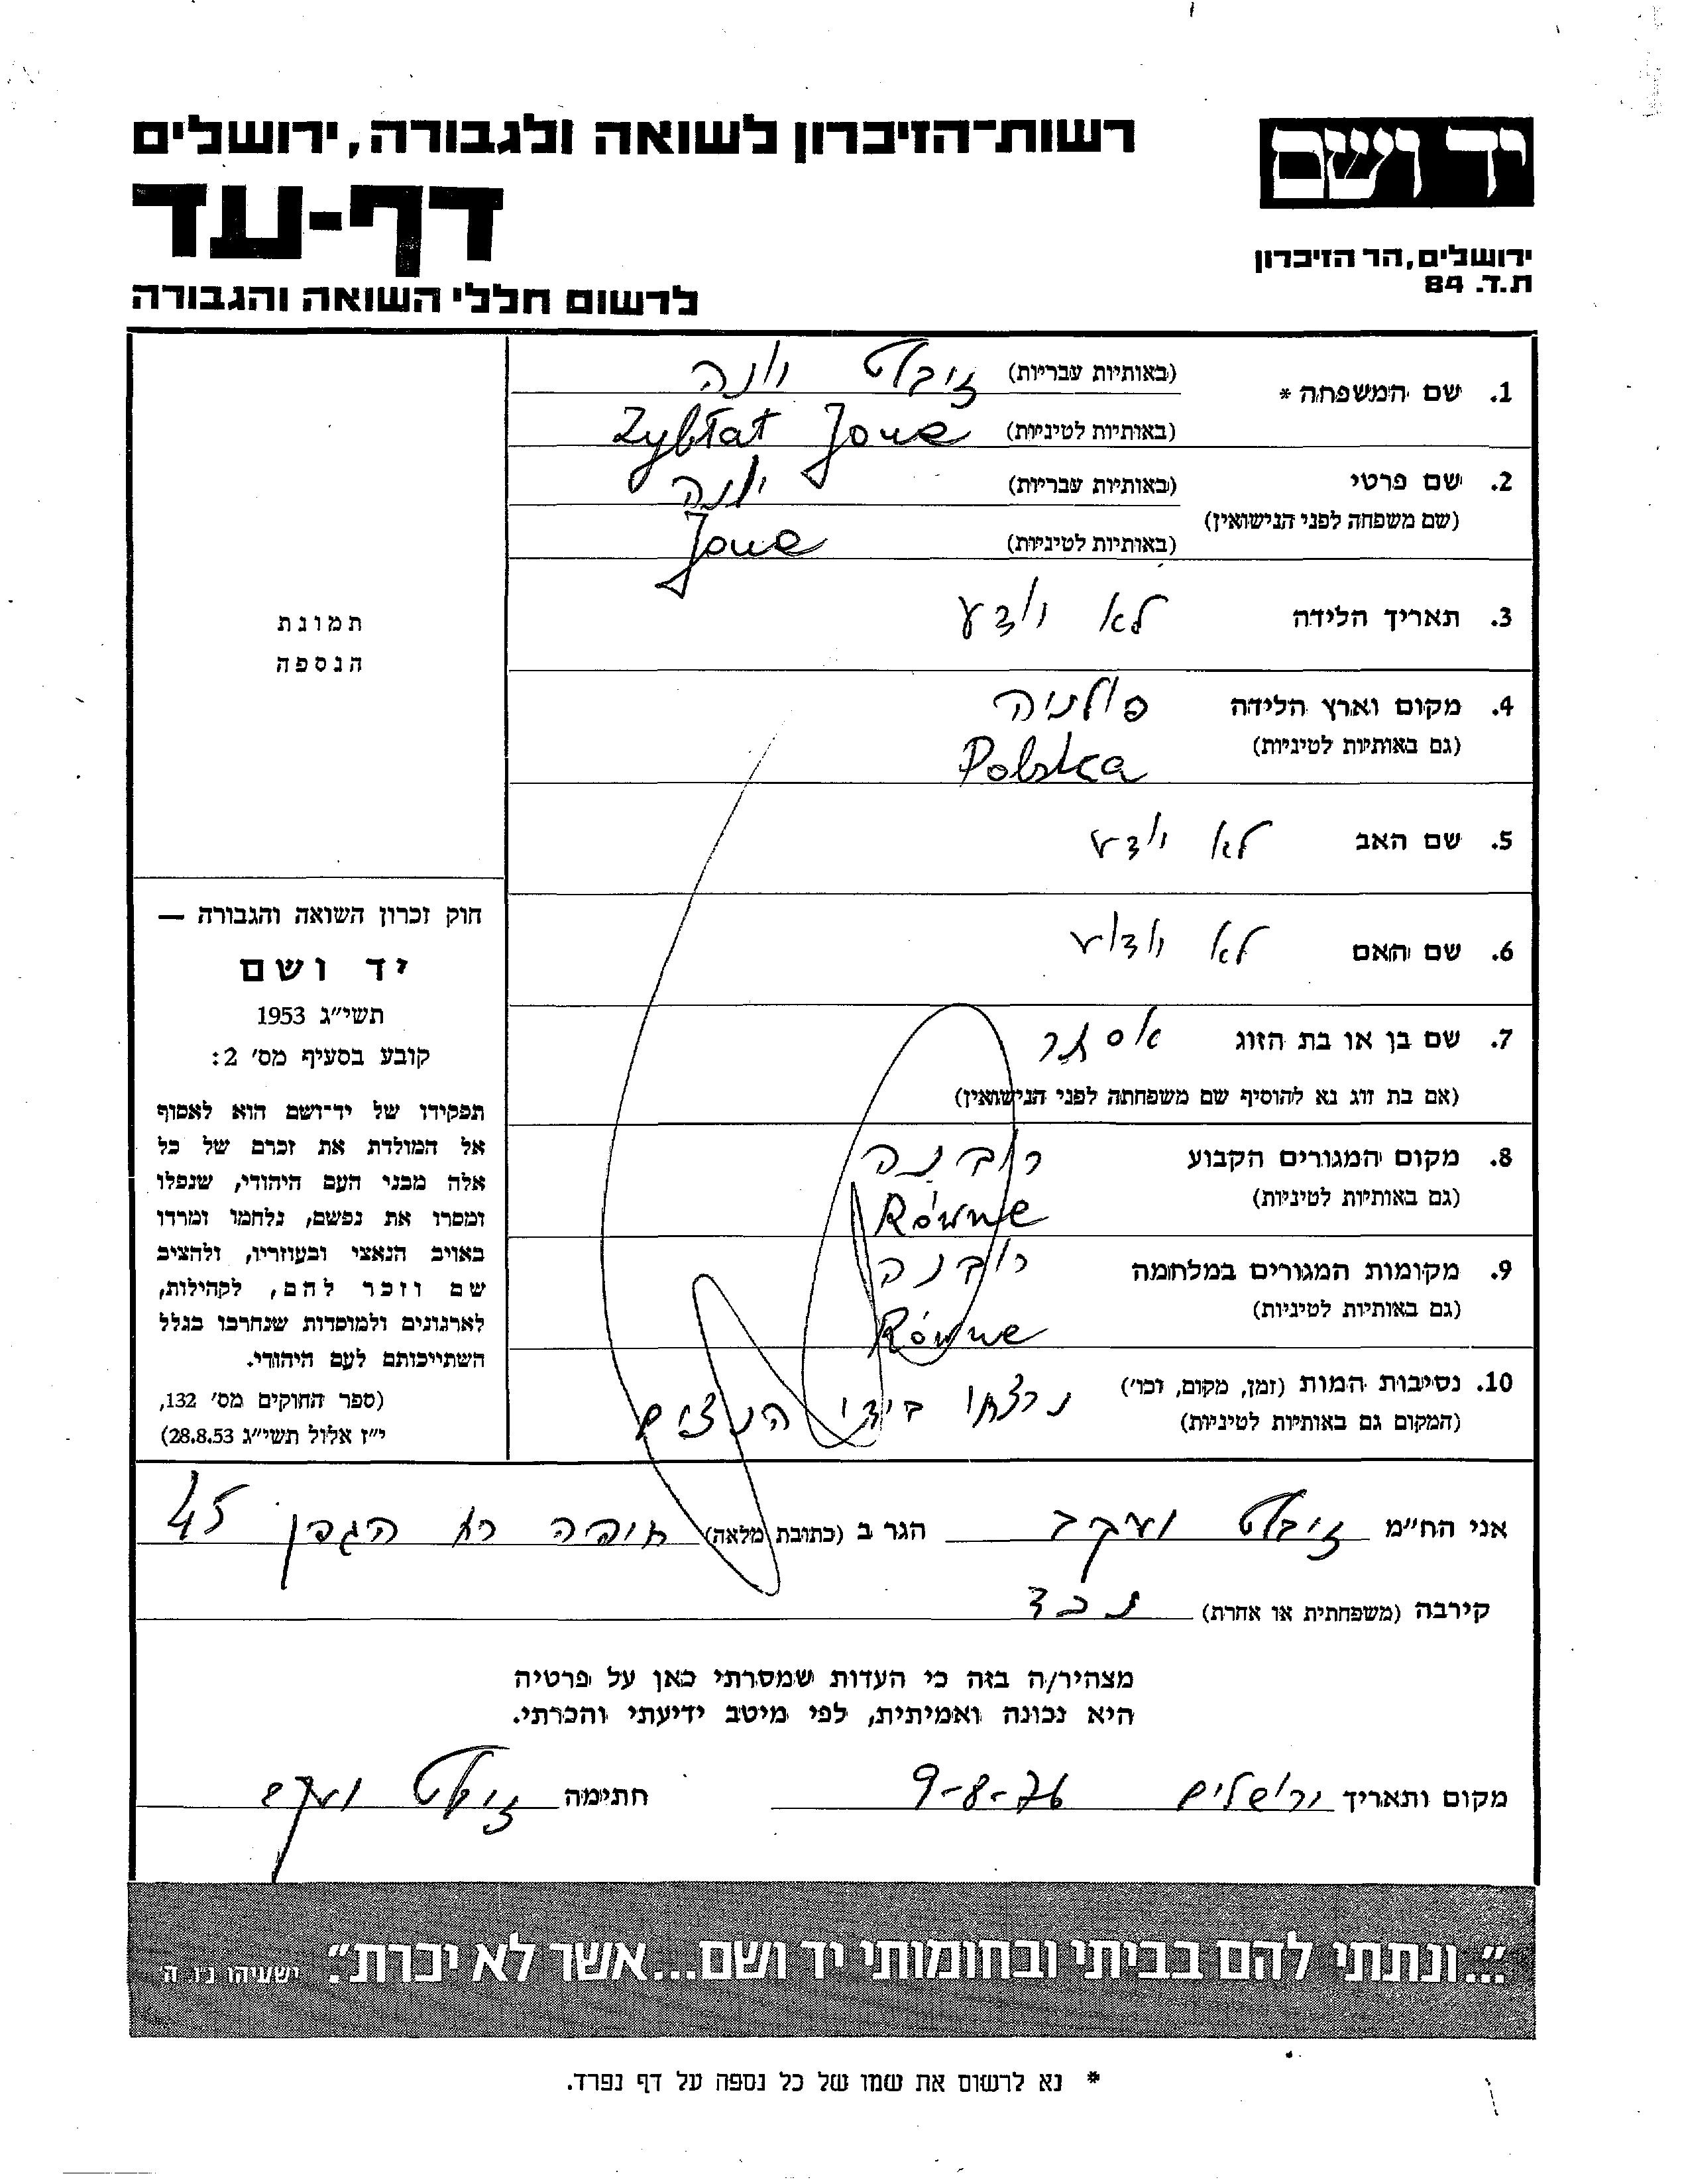 רשות־הזיכרון לשואה ולגבורה, ירושלים
יד ושם
דף-עד
ירושלים, הר הזיכרון
ת.ד. 84
לרשום חללי השואה והגבורה
1. שם המשפחה * (באותיות עבריות) זיבלט יונה
(באותיות לטיניות) Zybłat Jone
2. שם פרטי (באותיות עבריות) יונה
(שם משפחה לפני הנישואין)
(באותיות לטיניות) Jone
3. תאריך הלידה לא יודע
תמונת
הנספה
4. מקום וארץ הלידה פולניה
(גם באותיות לטיניות) Polska
5. שם האב לא יודע
6. שם האם לא יודע
7. שם בן או בת הזוג אסתר
(אם בת זוג נא להוסיף שם משפחתה לפני הנישואין)
8. מקום המגורים הקבוע רובנה
(גם באותיות לטיניות) Równe
9. מקומות המגורים במלחמה רובנה
(גם באותיות לטיניות) Równe
10. נסיבות המות (זמן, מקום, וכו') נרצחו בידי הנצים
(המקום גם באותיות לטיניות)
חוק זכרון השואה והגבורה —
יד ושם
תשי"ג 1953
קובע בסעיף מס' 2:
תפקידו של יד־ושם הוא לאסוף
אל המולדת את זכרם של כל
אלה מבני העם היהודי, שנפלו
ומסרו את נפשם, נלחמו ומרדו
באויב הנאצי ובעוזריו, ולהציב
שם וזכר להם, לקהילות,
לארגונים ולמוסדות שנחרבו בגלל
השתייכותם לעם היהודי.
(ספר החוקים מס' 132,
י"ז אלול תשי"ג 28.8.53)
אני הח"מ זיבלט יעקב הגר ב (כתובת מלאה) חיפה רח הגפן 45
קירבה (משפחתית או אחרת) נכד
מצהיר/ה בזה כי העדות שמסרתי כאן על פרטיה
היא נכונה ואמיתית, לפי מיטב ידיעתי והכרתי.
מקום ותאריך ירושלים 9-8-76 חתימה זיבלט יעקב
"...ונתתי להם בביתי ובחומותי יד ושם...אשר לא יכרת". ישעיהו נ"ו ה
* נא לרשום את שמו של כל נספה על דף נפרד.